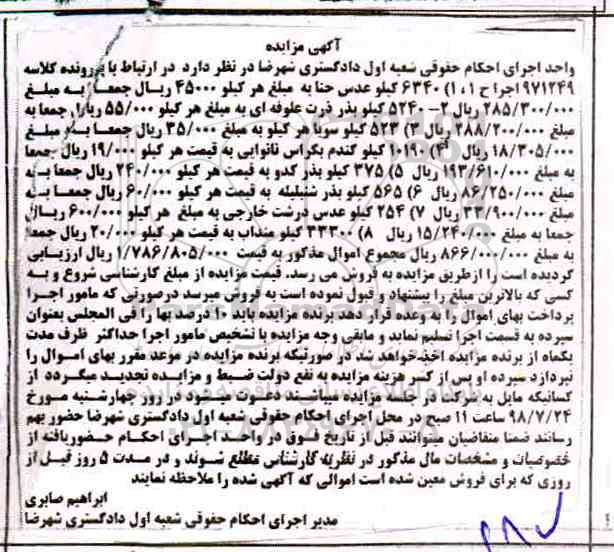 آگهی مزایده
واحد اجرای احکام حقوقی شعبه اول دادگستری شهرضا در نظر دارد در ارتباط با پرونده کلاسه
۹۷۱۲۴۹ اجرا ح ۱۰۱) ۶۳۴۰ کیلو عدس حنا به مبلغ هر کیلو ۴۵۰۰۰ ریال جمعاً به مبلغ
۲۸۵/۳۰۰/۰۰۰ ریال ۲- ۵۲۴۰ کیلو بذر ذرت علوفه ای به مبلغ هر کیلو ۵۵/۰۰۰ ریال جمعا به
مبلغ ۲۸۸/۲۰۰/۰۰۰ ریال ۳) ۵۲۳ کیلو سویا هر کیلو به مبلغ ۳۵/۰۰۰ ریال جمعا به مبلغ
۱۸/۳۰۵/۰۰۰ ریال ۴) ۱۰۱۹۰ کیلو گندم بکراس نانوایی به قیمت هر کیلو ۱۹/۰۰۰ ریال جمعا
به مبلغ ۱۹۳/۶۱۰/۰۰۰ ریال ۵) ۳۷۵ کیلو بذر کدو به قیمت هر کیلو ۲۴۰/۰۰۰ ریال جمعا به
مبلغ ۸۶/۲۵۰/۰۰۰ ریال ۶) ۵۶۵ کیلو بذر شنبلیله به قیمت هر کیلو ۶۰/۰۰۰ ریال جمعا به
مبلغ ۳۳/۹۰۰/۰۰۰ ریال ۷) ۲۵۴ کیلو عدس درشت خارجی به مبلغ هر کیلو ۶۰۰/۰۰۰ ریال
جمعا به مبلغ ۱۵/۲۴۰/۰۰۰ ریال ۸) ۳۳۳۰۰ کیلو منداب به قیمت هر کیلو ۲۰/۰۰۰ ریال جمعا
به مبلغ ۸۶۶/۰۰۰/۰۰۰ ریال مجموع اموال مذکور به قیمت ۱/۷۸۶/۸۰۵/۰۰۰ ریال ارزیابی
گردیده است را ازطریق مزایده به فروش می رسد. قیمت مزایده از مبلغ کارشناسی شروع و به
کسی که بالاترین مبلغ را پیشنهاد و قبول نموده است به فروش میرسد درصورتی که مامور اجرا
پرداخت بهای اموال را به وعده قرار دهد برنده مزایده باید ۱۰ درصد بها را فی المجلس بعنوان
سپرده به قسمت اجرا تسلیم نماید و مابقی وجه مزایده با تشخیص مامور اجرا حداکثر ظرف مدت
یکماه از برنده مزایده اخذ خواهد شد در صورتیکه برنده مزایده در موعد مقرر بهای اموال را
نپردازد سپرده او پس از کسر هزینه مزایده به نفع دولت ضبط و مزایده تجدید میگردد از
کسانیکه مایل به شرکت در جلسه مزایده میباشند دعوت میشود در روز چهارشنبه مورخ
۹۸/۷/۲۴ ساعت ۱۱ صبح در محل اجرای احکام حقوقی شعبه اول دادگستری شهرضا حضور بهم
رسانند ضمنا متقاضیان میتوانند قبل از تاریخ فوق در واحد اجرای احکام حضوریافته از
خصوصیات و مشخصات مال مذکور در نظریه کارشناسی مطلع شوند و در مدت ۵ روز قبل از
روزی که برای فروش معین شده است اموالی که آگهی شده را ملاحظه نمایند
ابراهیم صابری
مدیر اجرای احکام حقوقی شعبه اول دادگستری شهرضا